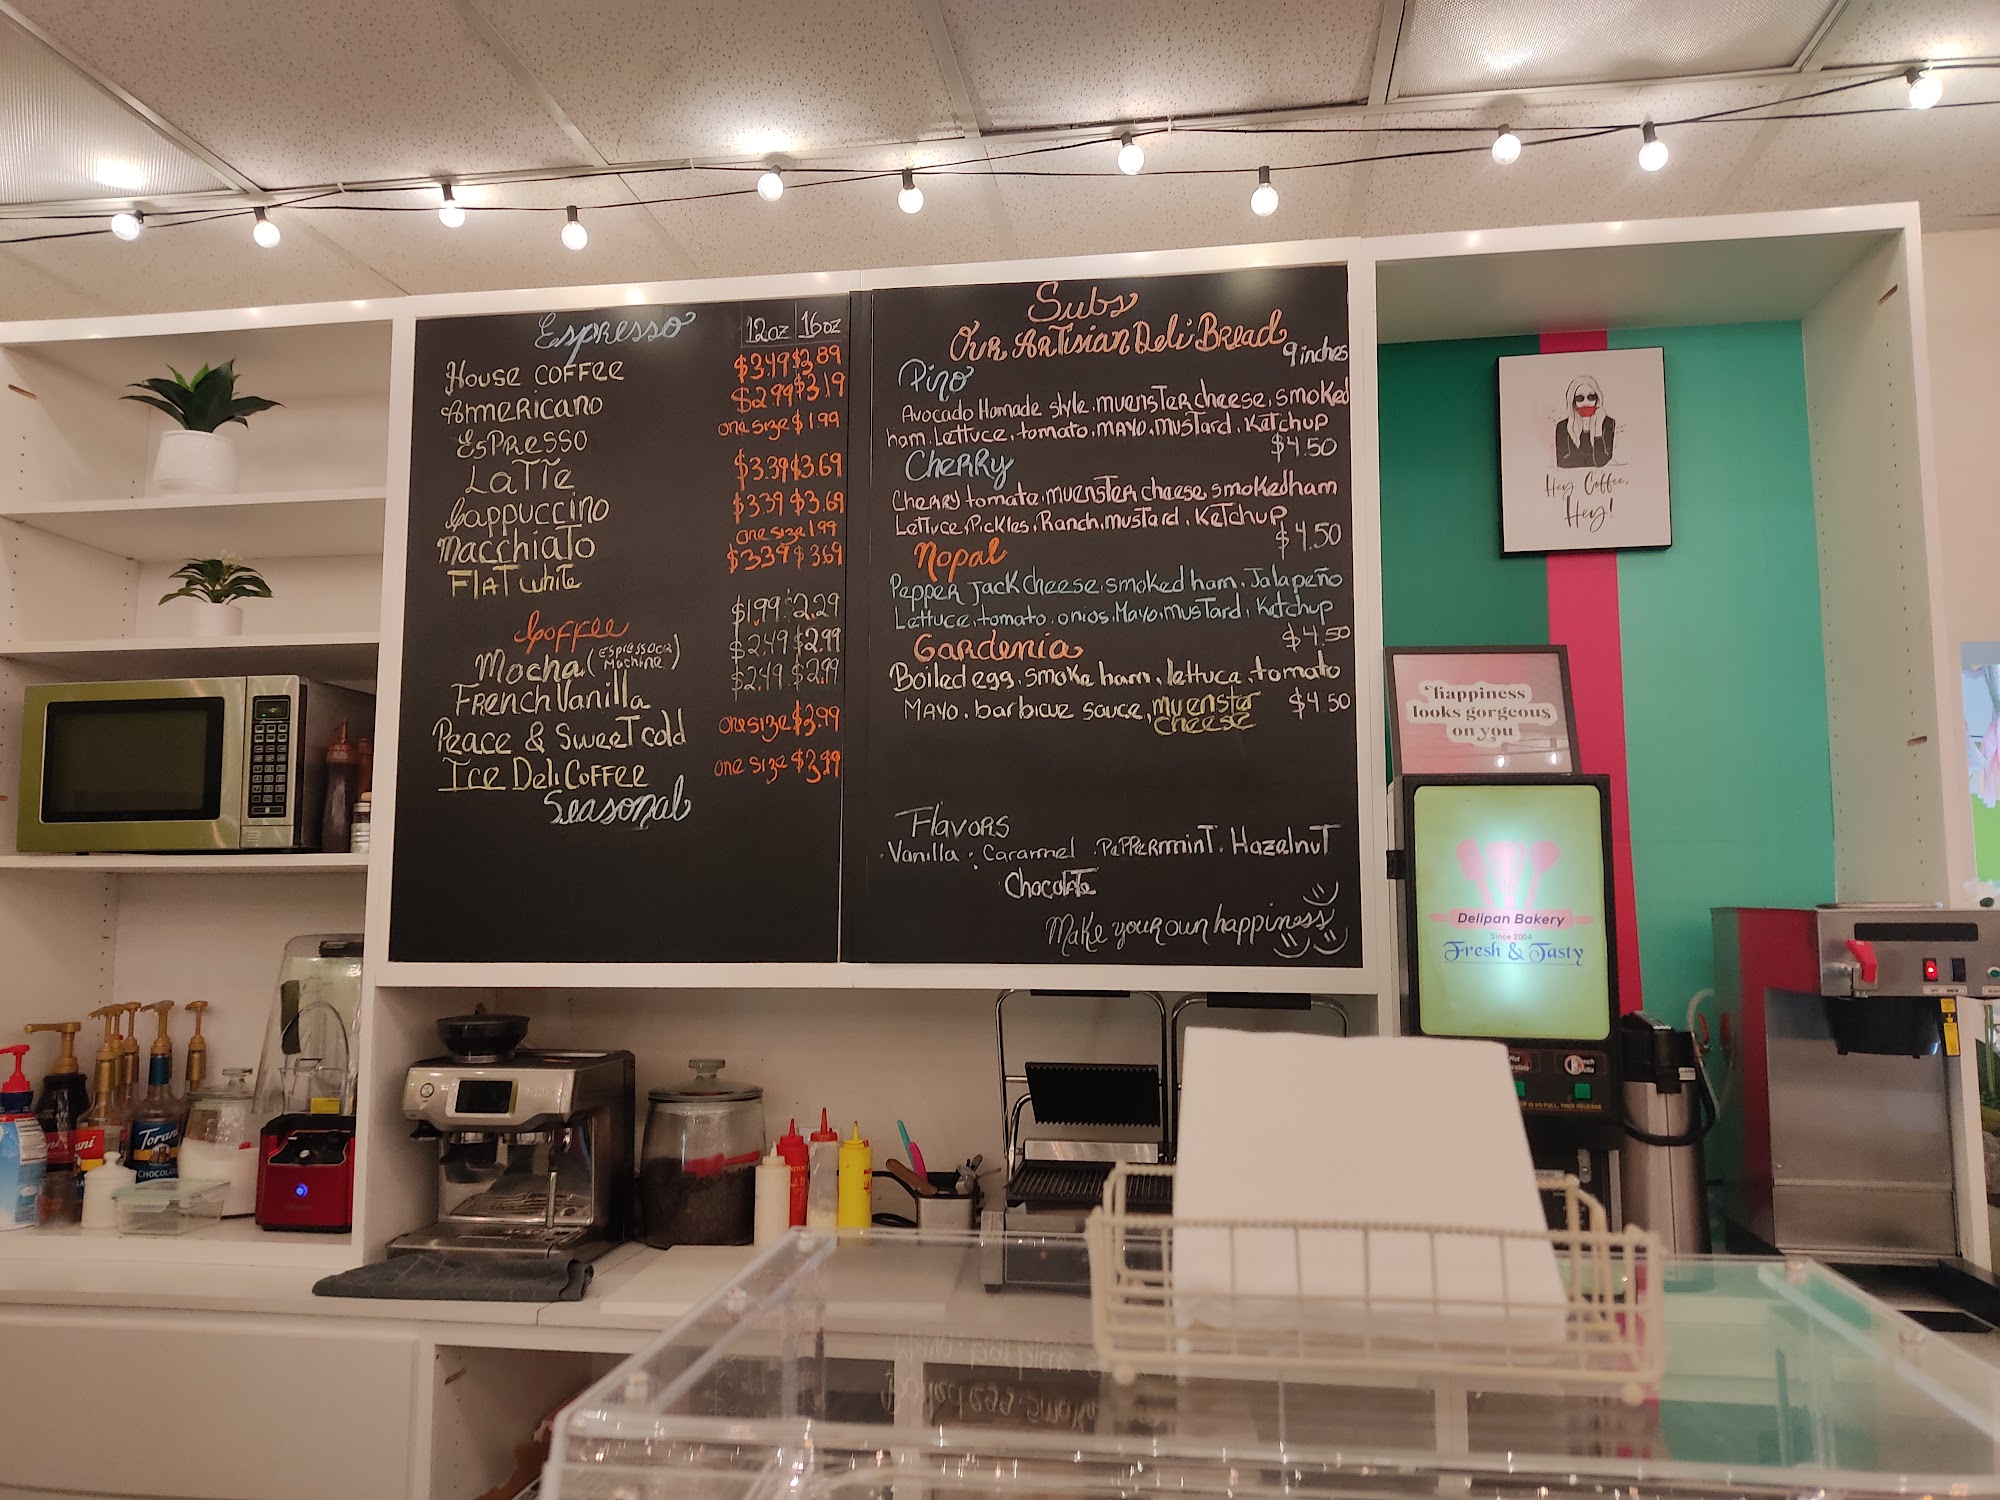 Espresso 12oz 16oz
House COFFEE $3.49 $3.89
Americano $2.99 $3.19
EsPRESSO one size $1.99
LaTTe $3.39 $3.69
Cappuccino $3.39 $3.69
Macchiato one size 1.99
FlAT white $3.39 $3.69
Coffee $1.99 $2.29
Mocha (Espresso OR Machine) $2.49 $2.99
French Vanilla $2.49 $2.99
Peace & Sweet cold one size $3.99
Ice Deli Coffee one size $3.99
Seasonal
Subs
Our Artisian Deli Bread
9 inches
Pino
Avocado Homade style, muenster cheese, smoked
ham, Lettuce, tomato, mayo, mustard, Ketchup
$4.50
Cherry
Cherry tomato, muenster cheese, smoked ham
Lettuce, Pickles, Ranch, mustard, Ketchup
$4.50
Nopal
Pepper Jack cheese, smoked ham, Jalapeño
Lettuce, tomato, onios, Mayo, mustard, Ketchup
$4.50
Gardenia
Boiled egg, smoke ham, lettuce, tomato
Mayo, barbicue sauce, muenster cheese $4.50
Flavors
Vanilla . Caramel . Peppermint . Hazelnut
Chocolate
Make your own happiness
Hey Coffee,
Hey!
happiness
looks gorgeous
on you
Delipan Bakery
Since 2004
Fresh & Tasty
Torani
CHOCOLATE